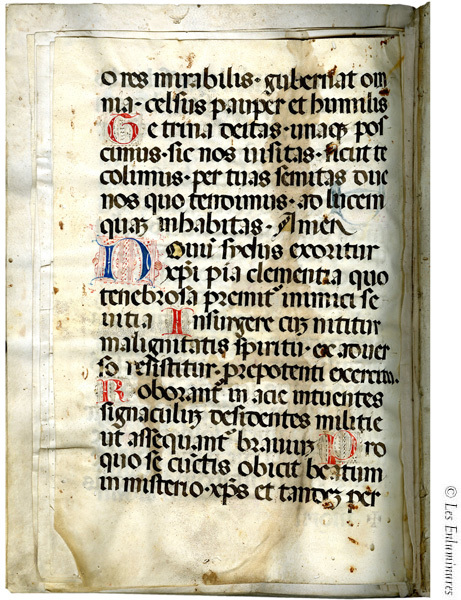 o res mirabilis · gubernat om
nia · celsus pauper et humilis
Te trina deitas · unaq̄ pos
cimus · sic nos uisitas · sicut te
colimus · per tuas semitas duc
nos quo tendimus · ad lucem
quaȝ inhabitas · Amen
Noui sydus exoritur
xp̄i pia clementia quo
tenebrosa premit᷑ inimici se
uitia Insurgere cuȝ nititur
malignitatis spiritu · ex aduer
so resistitur · prepotenti exercitu.
Roborant᷑ in acie intuentes
signaculuȝ desidentes militie
ut assequant᷑ brauiuȝ Pro
quo se cunctis obicit beatum
in misterio · xp̄s et tandeȝ per
© Les Enluminures